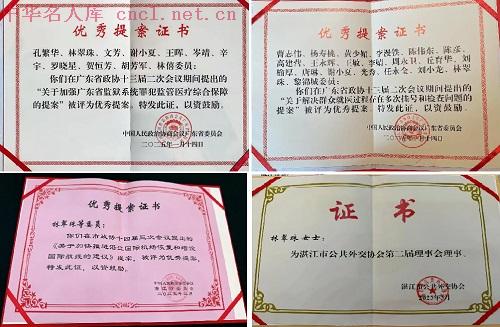 中华名人库 cncl.net.cn
优秀提案证书
孔繁华、林翠珠、文芳、谢小夏、王晖、岑靖、辛
宇、罗晓星、贺恒芳、胡芳芳、林倍委员：
你们在广东省政协十三届二次会议期间提出的
“关于加强广东省监狱系统罪犯监管医疗综合保障
的提案”被评为优秀提案。特发此证，以资鼓励。
中国人民政治协商会议广东省委员会
二〇二五年一月十四日
优秀提案证书
曹志伟、杨寿桃、黄少媚、李漫铁、陈伟东、陈彦、
高建营、王永辉、王敏、李婧、周永卫、丘育华、刘
榆厚、唐琳、谢小夏、光秀、任永全、刘小龙、林翠
珠、黎锦城委员：
你们在广东省政协十三届二次会议期间提出的
“关于解决群众就医过程存在多次挂号和检查问题的
提案”被评为优秀提案。特发此证，以资鼓励。
中国人民政治协商会议广东省委员会
二〇二五年一月十四日
优秀提案证书
林翠珠等委员：
你们在市政协十四届三次会议提出的
《关于加快推进湛江国际机场恢复和增设
国际航线的建议》提案，被评为优秀提案，
特发此证，以资鼓励。
中国人民政治协商会议
湛江市委员会
证书
林翠珠女士：
为湛江市公共外交协会第二届理事会理事。
湛江市公共外交协会
2023年3月